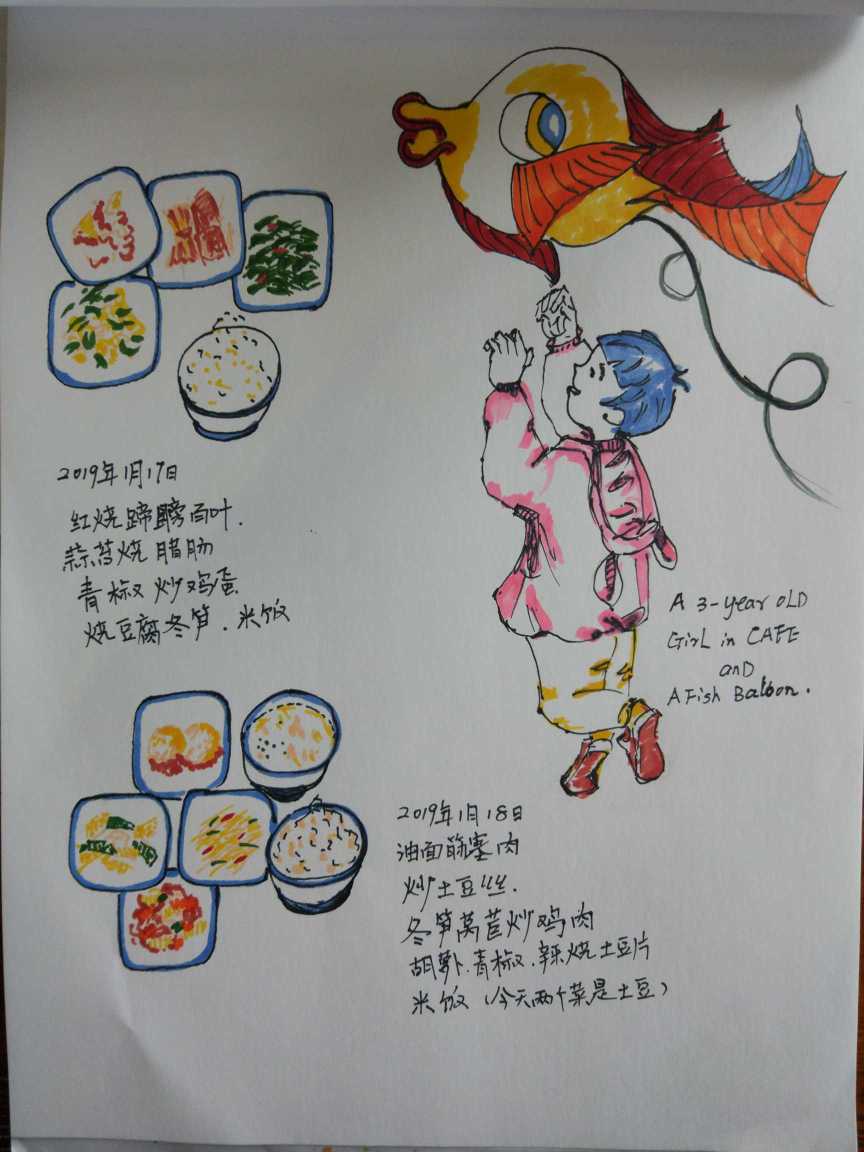 2019年1月17日
红烧蹄髈百叶.
蒜苔烧腊肠
青椒炒鸡蛋
烧豆腐冬笋.米饭
A 3-year OLD
GirL in CAFE
anD
A Fish Baloon.
2019年1月18日
油面筋塞肉
炒土豆丝.
冬笋莴苣炒鸡肉
胡萝卜.青椒.辣烧土豆片
米饭(今天两个菜是土豆)